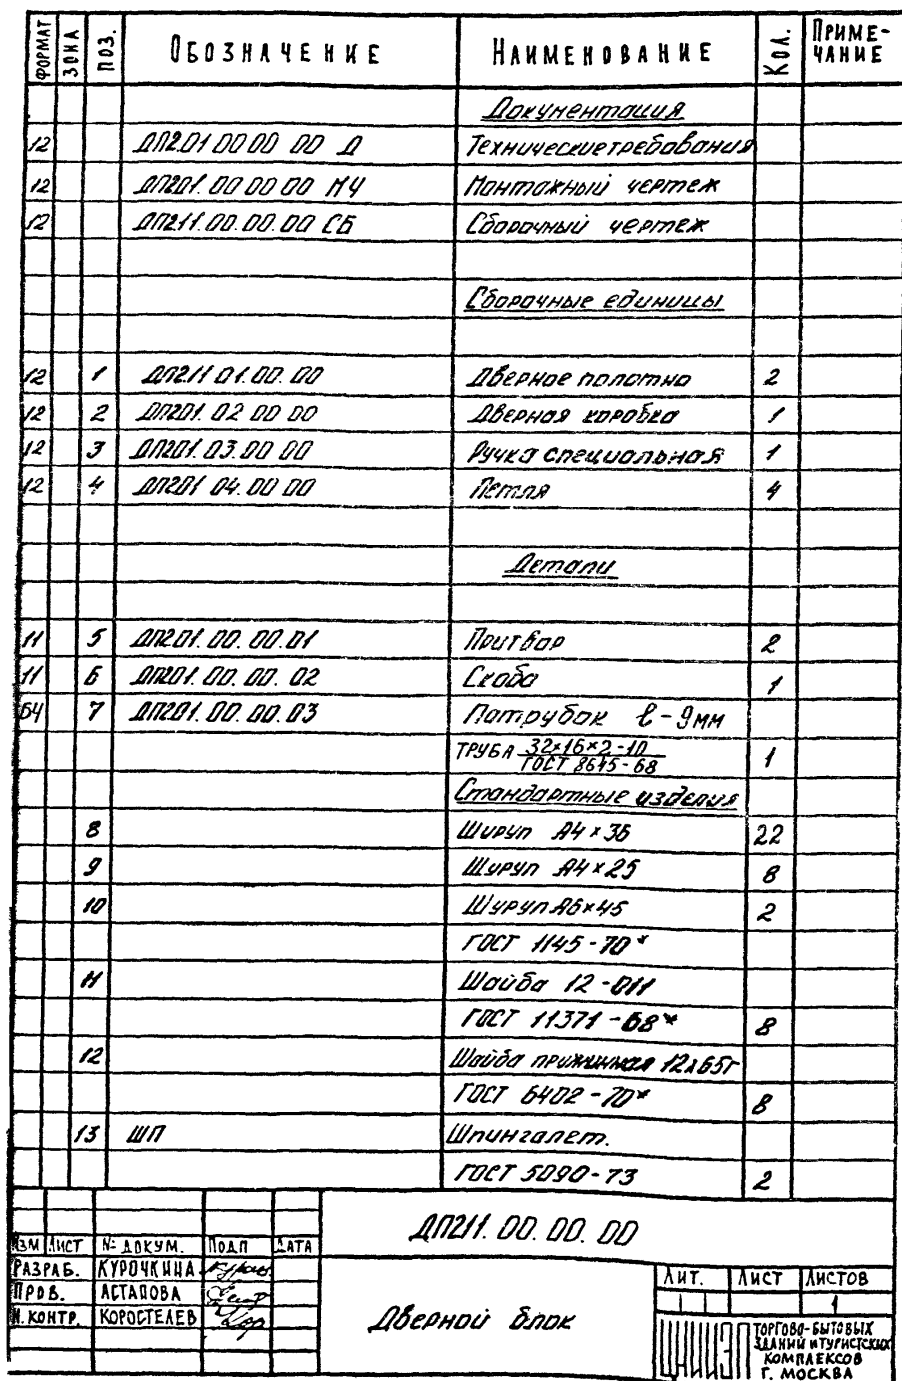 ФОРМАТ ЗОНА ПОЗ. ОБОЗНАЧЕНИЕ НАИМЕНОВАНИЕ КОЛ. ПРИМЕ-
ЧАНИЕ
Документация
12 ДП201 00 00 00 Д Технические требования
12 ДП201. 00 00 00 МЧ Монтажный чертеж
12 ДП211. 00. 00. 00 СБ Сборочный чертеж
Сборочные единицы
12 1 ДП211 01. 00. 00 Дверное полотно 2
12 2 ДП201. 02 00 00 Дверная коробка 1
12 3 ДП201. 03. 00 00 Ручка специальная 1
12 4 ДП201 04. 00 00 Петля 4
Детали
11 5 ДП201. 00. 00. 01 Притвор 2
11 6 ДП201. 00. 00. 02 Скоба 1
БЧ 7 ДП201. 00. 00. 03 Патрубок ℓ-9мм
ТРУБА 32×16×2-10
ГОСТ 8645-68 1
Стандартные изделия
8 Шуруп А4×36 22
9 Шуруп А4×25 8
10 Шуруп А6×45 2
ГОСТ 1145-70*
11 Шайба 12-011
ГОСТ 11371-68* 8
12 Шайба пружинная 12х65Г
ГОСТ 6402-70* 8
13 ШП Шпингалет.
ГОСТ 5090-73 2
ДП211. 00. 00. 00
ИЗМ ЛИСТ № ДОКУМ. ПОДП ДАТА
РАЗРАБ. КУРОЧКИНА
ПРОВ. АСТАПОВА
Н. КОНТР. КОРОСТЕЛЕВ
Дверной блок
ЛИТ. ЛИСТ ЛИСТОВ
1
ЦНИИЭП
ТОРГОВО-БЫТОВЫХ
ЗДАНИЙ И ТУРИСТСКИХ
КОМПЛЕКСОВ
Г. МОСКВА